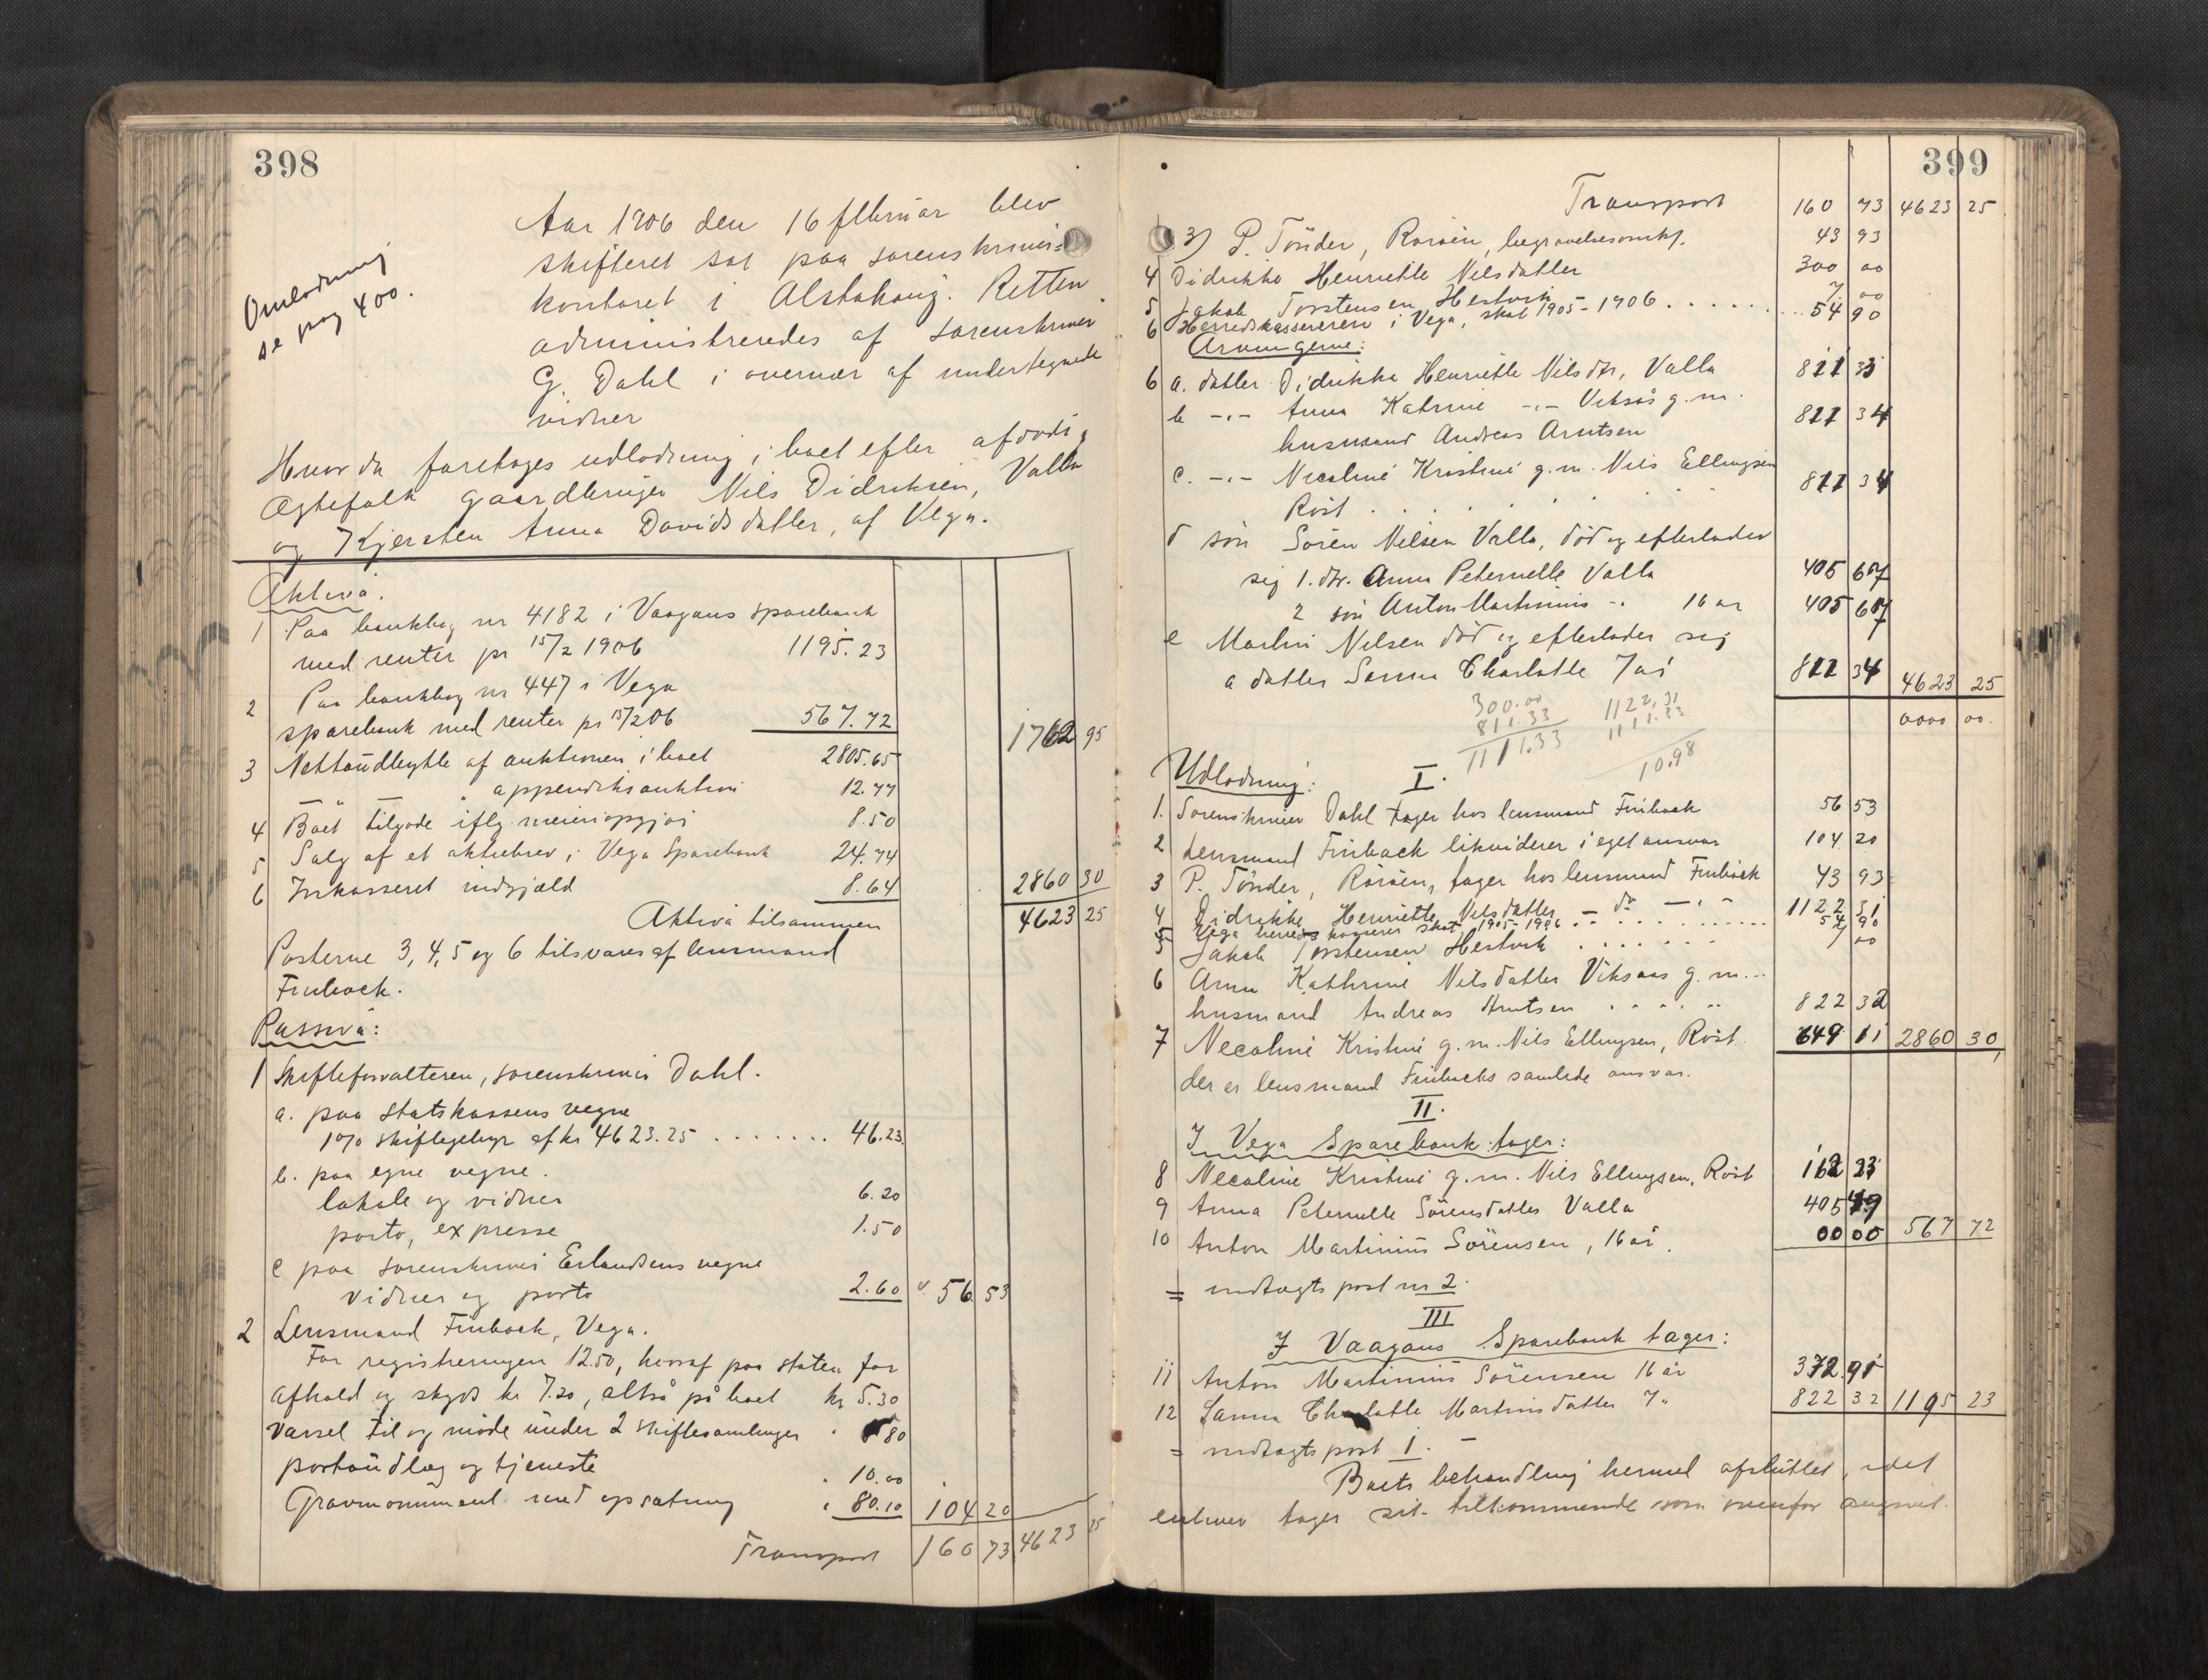 398
Omlodning
se pag 400.
Aar 1906 den 16 februar blev
skifteret sat paa sorenskriver=
kontoret i Alstahaug. Retten
administreredes af sorenskriver
G. Dahl i overvær af undertegnede
vidner
Hvor da foretoges udlodning i boet efter afdøde
Ægtefolk gaardbruger Nils Didriksen, Valla
og Kjersten Anna Davidsdatter, af Vega.
Aktiva.
1 Paa bankbog nr 4182 i Vaagans sparebank
med renter pr 15/2 1906 1195.23
2 Paa bankbog nr 447 i Vega
sparebank med renter pr 15/2 06 567.72 1762 95
3 Nettoudbytte af auktionen i boet 2805.65
— " — " appendiksauktion 12.77
4 Boet tilgode iflg. meieriopgjør 8.50
5 Salg af et aktiebrev i Vega Sparebank 24.74
6 Inkasseret indgjæld 8.64 2860 30
Aktiva tilsammen 4623 25
Posterne 3, 4, 5 og 6 tilsvares af lensmand
Finback.
Passiva:
1 Skifteforvalteren, sorenskriver Dahl.
a. paa statskassens vegne
1% skiftegebyr af kr 4623.25 ....... 46.23
b. paa egne vegne.
lokale og vidner 6.20
porto, expresse 1.50
c paa sorenskriver Erlandsens vegne
vidner og porto 2.60 56 53
2 Lensmand Finback, Vega.
For registreringen 12.50, hvoraf paa staten for
afhold og skyds kr 7.20, altså på boet kr 5.30
Varsel til og møde under 2 skiftesamlinger " 80
portoudlæg og tjeneste " 10.00
Gravmonument med opsætning " 80.10 104 20
Transport 160 73 4623 25
399
Transport 160 73 4623 25
3) P. Tönder, Rörøen, begravelsesomkst. 43 93
4 Didrikke Henriette Nilsdatter 300 00
5 Jakob Torstensen Hestvik 7 00
6 Herredskassereren i Vega, skat 1905-1906 ..... 54 90
Arvingerne:
6 a. datter Didrikke Henriette Nilsdtr, Valla 811 33
b -"- Anna Katrine -"- Viksås g. m.
husmand Andreas Arntsen 811 34
c. -"- Nicoline Kristine g. m. Nils Ellingsen
Röst . . . . . . 811 34
d sön Sören Nilsen Valla, död og efterlader
sig 1. dtr. Anna Peternelle Valla 405 67
2 sön Anton Martinius -" 16 år 405 67
e Martin Nilsen död og efterlader sig
a datter Sanna Charlotte 7 år 811 34 4623 25
0000 00.
300.00
811.33
1111.33
1122,31
1111.33
10.98
Udlodning: I.
1. Sorenskriver Dahl tager hos lensmand Finback 56 53
2 Lensmand Finback likviderer i eget ansvar 104 20
3 P. Tönder, Rörøen, tager hos lensmand Finback 43 93
4 Didrikke Henriette Nilsdatter - do - " - 1122 31
Vega herreds kasserer skat 1905-1906 ........ 54 90
5 Jakob Torstensen Hestvik . . . . . . 7 00
6 Anna Kathrine Nilsdatter Viksaas g. m...
husmand Andreas Arntsen . . . . . 822 32
7 Necoline Kristine g. m. Nils Ellingsen, Röst 649 11 2860 30
der er lensmand Finbacks samlede ansvar.
II.
I Vega Sparebank tager:
8 Necoline Kristine g. m. Nils Ellingsen, Röst 162 23
9 Anna Peternelle Sörensdatter Valla 405 49
10 Anton Martinius Sörensen, 16 år. 00 00 567 72
= indtægtspost nr 2.
III
I Vaagans Sparebank tager:
11 Anton Martinius Sörensen 16 år 372.91
12 Sanna Charlotte Martinsdatter 7 " 822 32 1195 23
= indtægtspost 1. -
Boets behandling hermed afsluttet, idet
enhver tager sit tilkommende som ovenfor angivet.